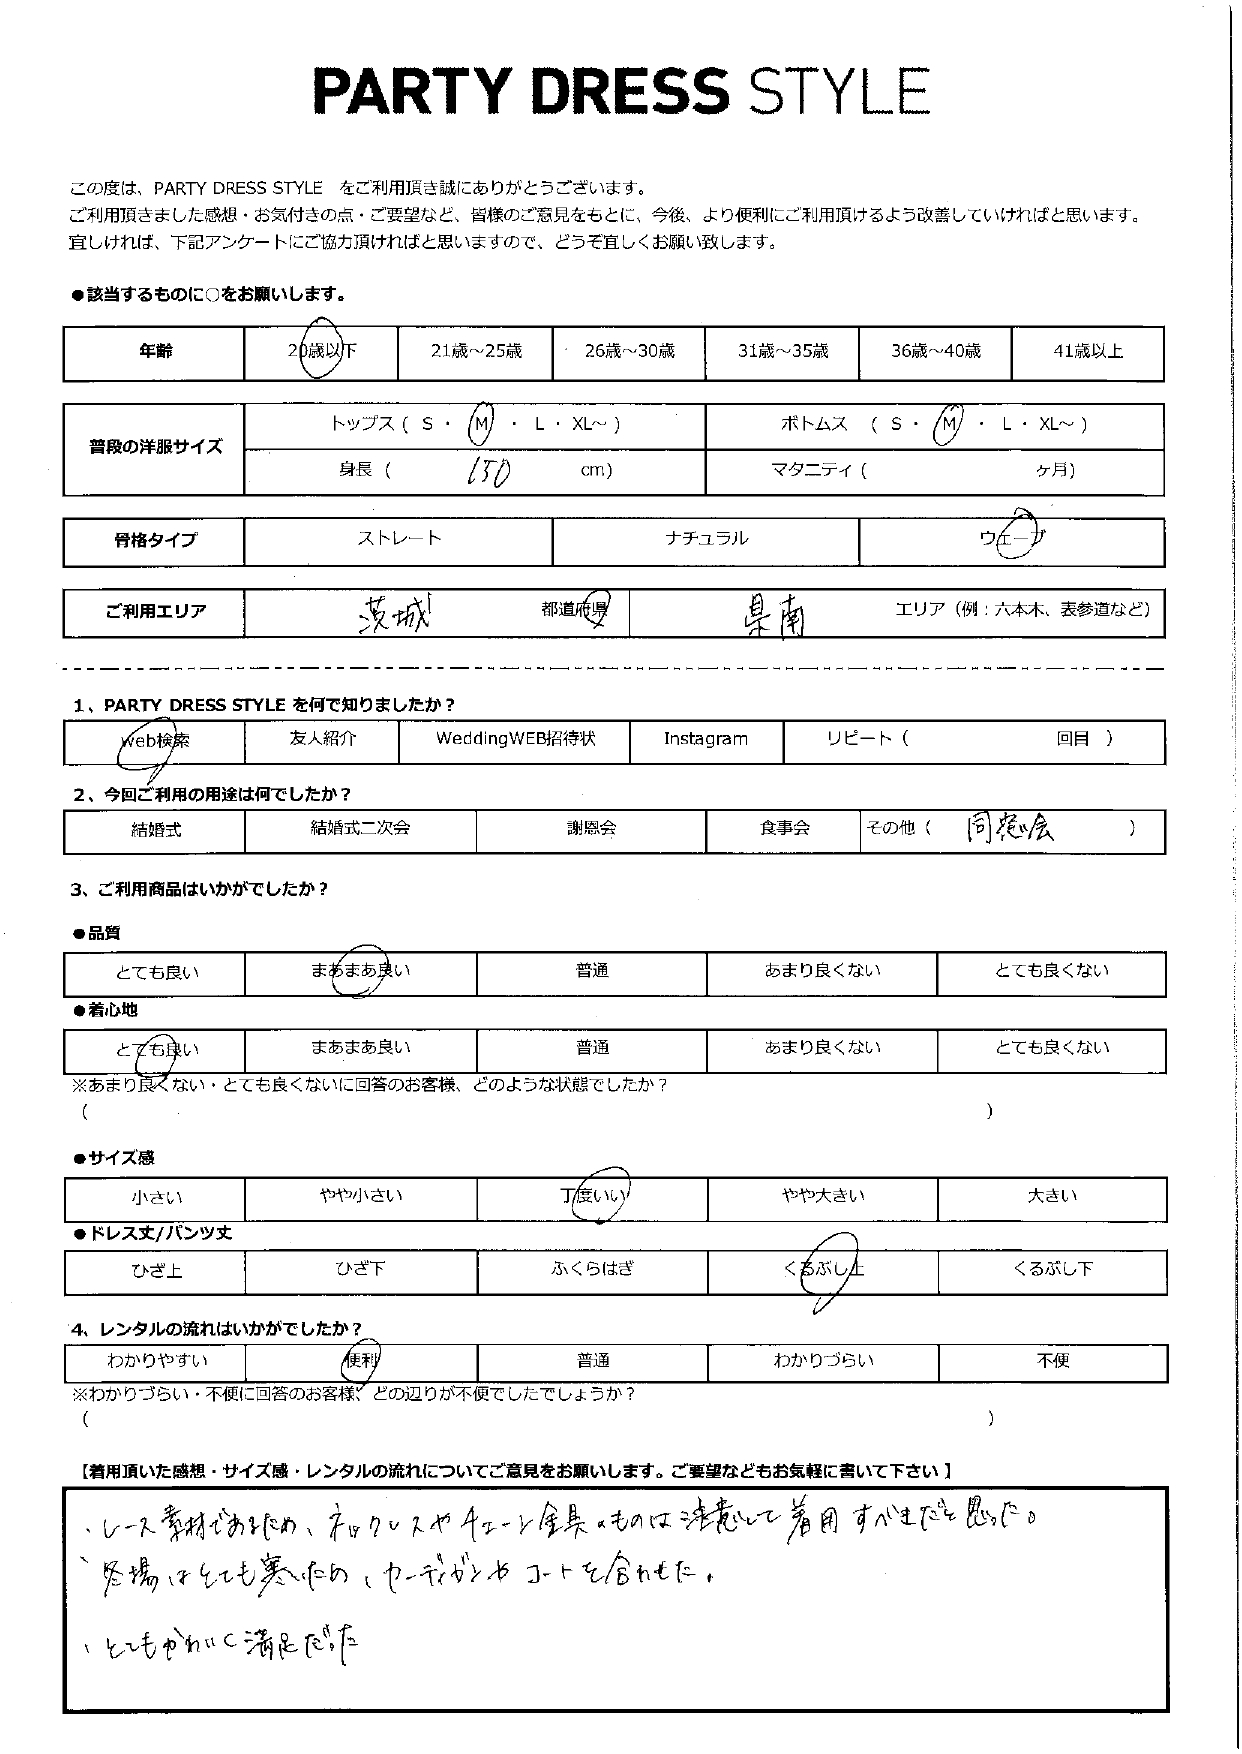 PARTY DRESS STYLE
この度は、PARTY DRESS STYLE をご利用頂き誠にありがとうございます。
ご利用頂きました感想・お気付きの点・ご要望など、皆様のご意見をもとに、今後、より便利にご利用頂けるよう改善していければと思います。
宜しければ、下記アンケートにご協力頂ければと思いますので、どうぞ宜しくお願い致します。
●該当するものに○をお願いします。
年齢 20歳以下 21歳～25歳 26歳～30歳 31歳～35歳 36歳～40歳 41歳以上
普段の洋服サイズ トップス ( S ・ M ・ L ・ XL～ ) ボトムス ( S ・ M ・ L ・ XL～ )
身長 ( 150 cm) マタニティ ( ヶ月)
骨格タイプ ストレート ナチュラル ウェーブ
ご利用エリア 茨城 都道府県 県南 エリア（例：六本木、表参道など）
1、PARTY DRESS STYLE を何で知りましたか？
web検索 友人紹介 WeddingWEB招待状 Instagram リピート ( 回目 )
2、今回ご利用の用途は何でしたか？
結婚式 結婚式二次会 謝恩会 食事会 その他 ( 同窓会 )
3、ご利用商品はいかがでしたか？
●品質
とても良い まあまあ良い 普通 あまり良くない とても良くない
●着心地
とても良い まあまあ良い 普通 あまり良くない とても良くない
※あまり良くない・とても良くないに回答のお客様、どのような状態でしたか？
( )
●サイズ感
小さい やや小さい 丁度いい やや大きい 大きい
●ドレス丈/パンツ丈
ひざ上 ひざ下 ふくらはぎ くるぶし上 くるぶし下
4、レンタルの流れはいかがでしたか？
わかりやすい 便利 普通 わかりづらい 不便
※わかりづらい・不便に回答のお客様、どの辺りが不便でしたでしょうか？
( )
【着用頂いた感想・サイズ感・レンタルの流れについてご意見をお願いします。ご要望などもお気軽に書いて下さい】
・レース素材であるため、ネックレスやチェーン金具のものは注意して着用すべきだと思った。
、会場はとても寒いため、カーディガンやコートを合わせた。
、とてもかわいく満足だった